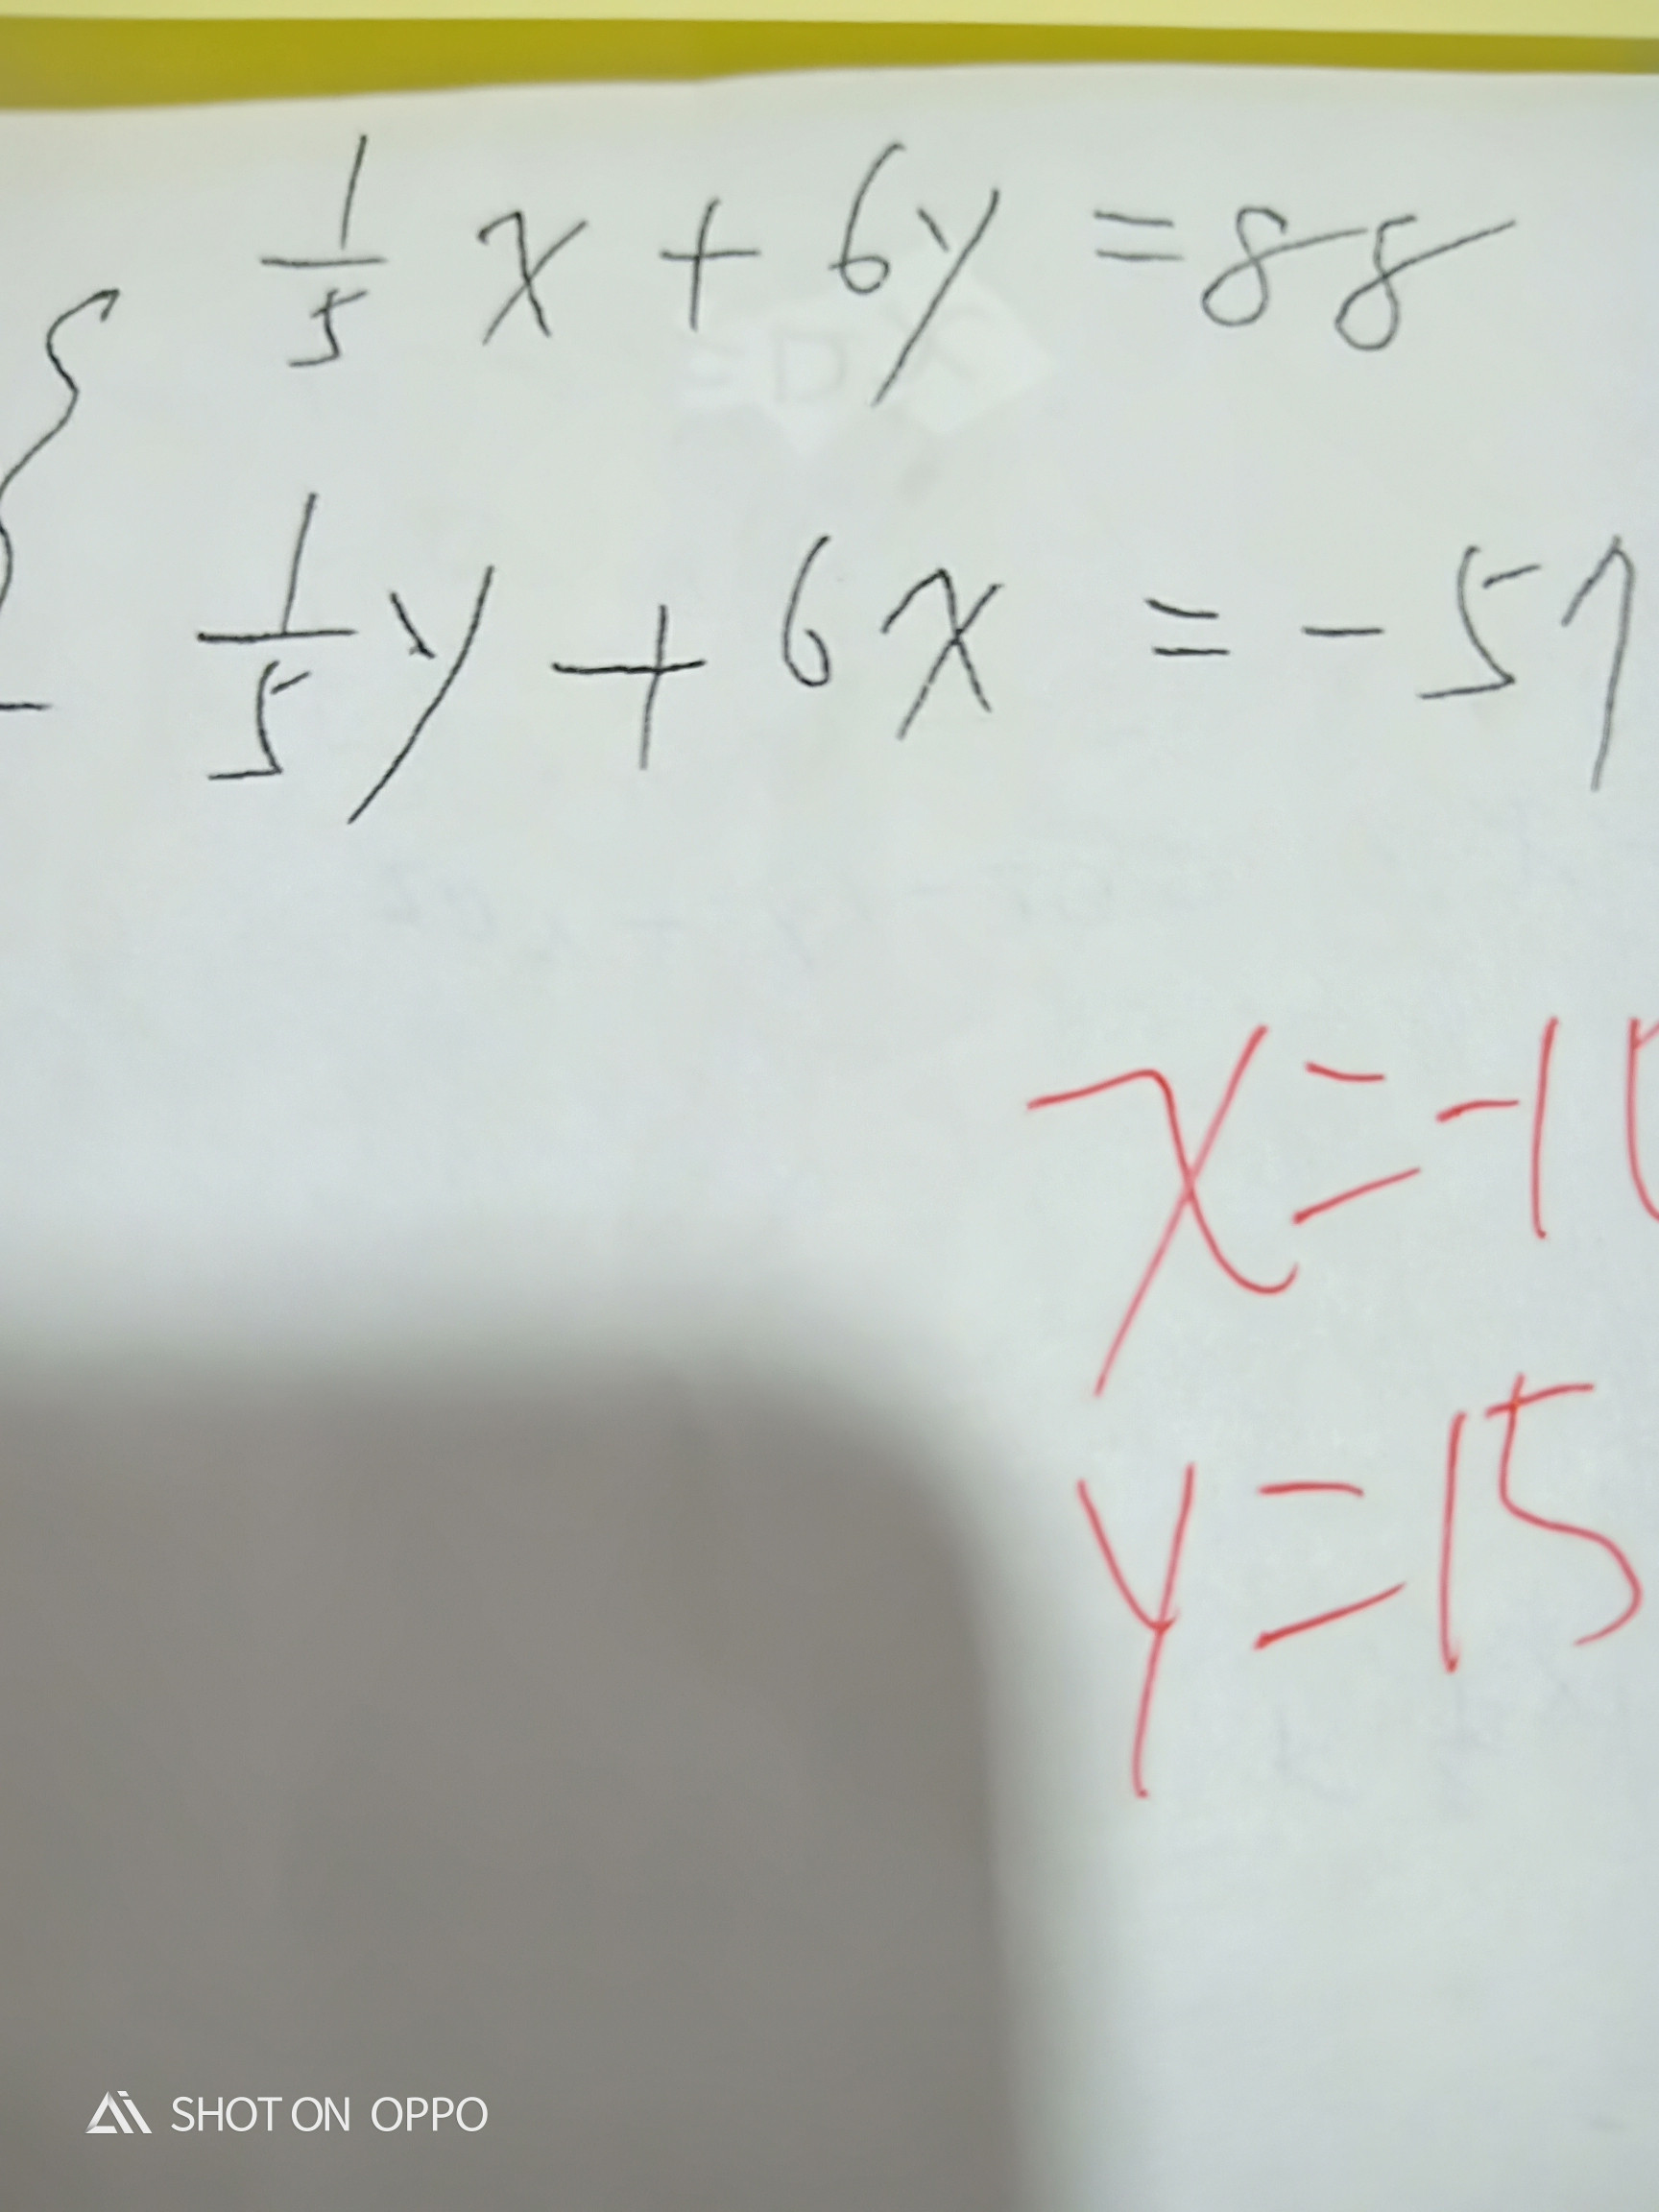 1/5 x + 6y = 88
1/5 y + 6x = -57
x = -10
y = 15
SHOT ON OPPO